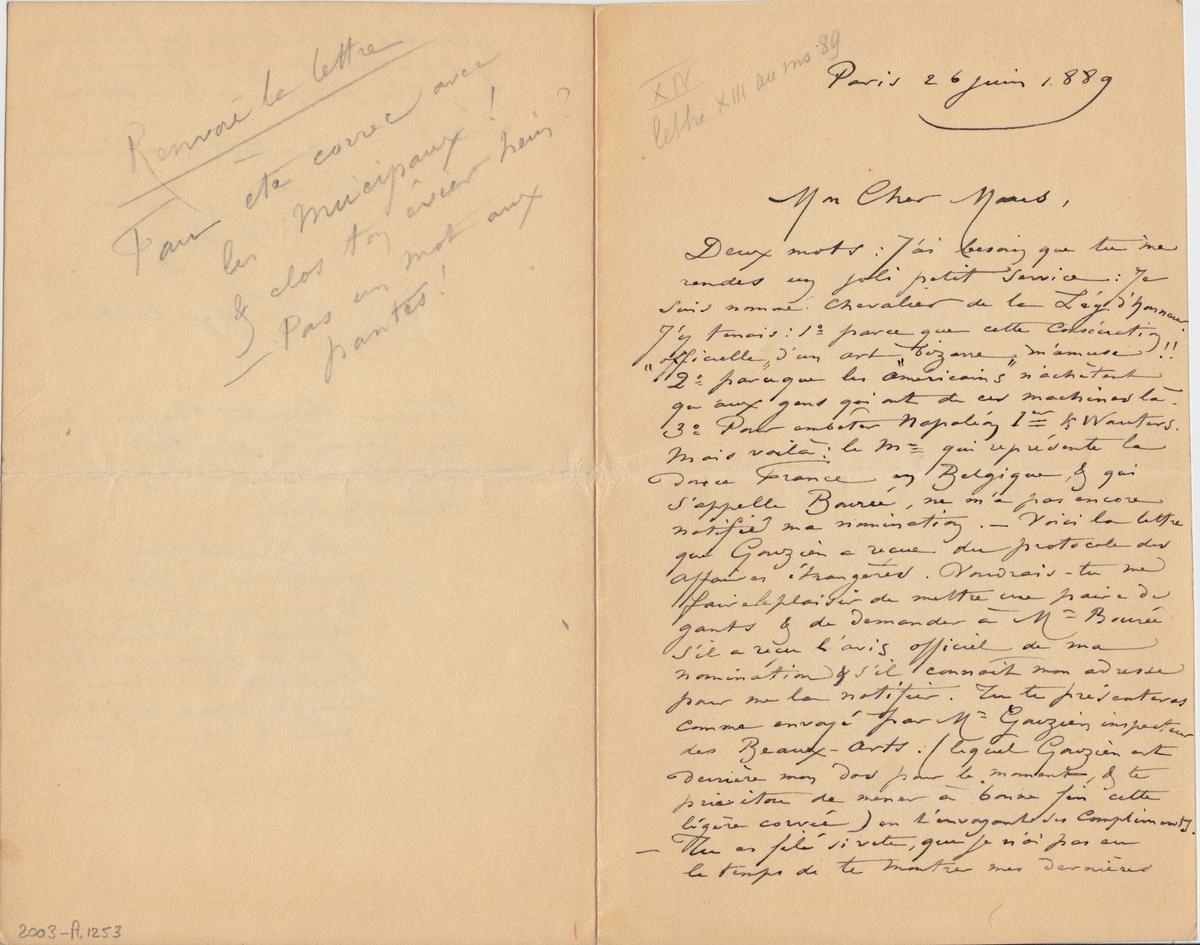 Renvoie la lettre
Faut être correc avec
les Municipaux !
& clos ton évier hein ?
— Pas un mot aux
pantes !
2003-A.1253
XIV
lettre XIII au ms. 89
Paris 26 juin 1889
Mon Cher Maus,
Deux mots : J'ai besoin que tu me
rendes un joli petit service : Je
suis nommé chevalier de la Lég. d'Honneur.
J'y tenais : 1º parce que cette Consécration
"officielle" d'un art "bizarre" m'amuse !!
2º parceque les "américains" n'achètent
qu'aux gens qui ont de ces machines là.
3º Pour embêter Napoléon Ier & Wauters.
Mais voilà : le Mr qui représente la
douce France en Belgique, & qui
s'appelle Bourée, ne m'a pas encore
notifié ma nomination. — Voici la lettre
que Gouzien a reçue du protocole des
affaires étrangères. Voudrais-tu me
faire le plaisir de mettre une paire de
gants & de demander à Mr Bourée
s'il a reçu l'avis officiel de ma
nomination & s'il connaît mon adresse
pour me la notifier. Tu te présenteras
comme envoyé par Mr Gouzien inspecteur
des Beaux-Arts. (lequel Gouzien est
derrière mon dos pour le moment, & te
prie de mener à bonne fin cette
légère corvée) en t'envoyant ses compliments.
— Tu as filé si vite, que je n'ai pas eu
le temps de te montrer mes dernières